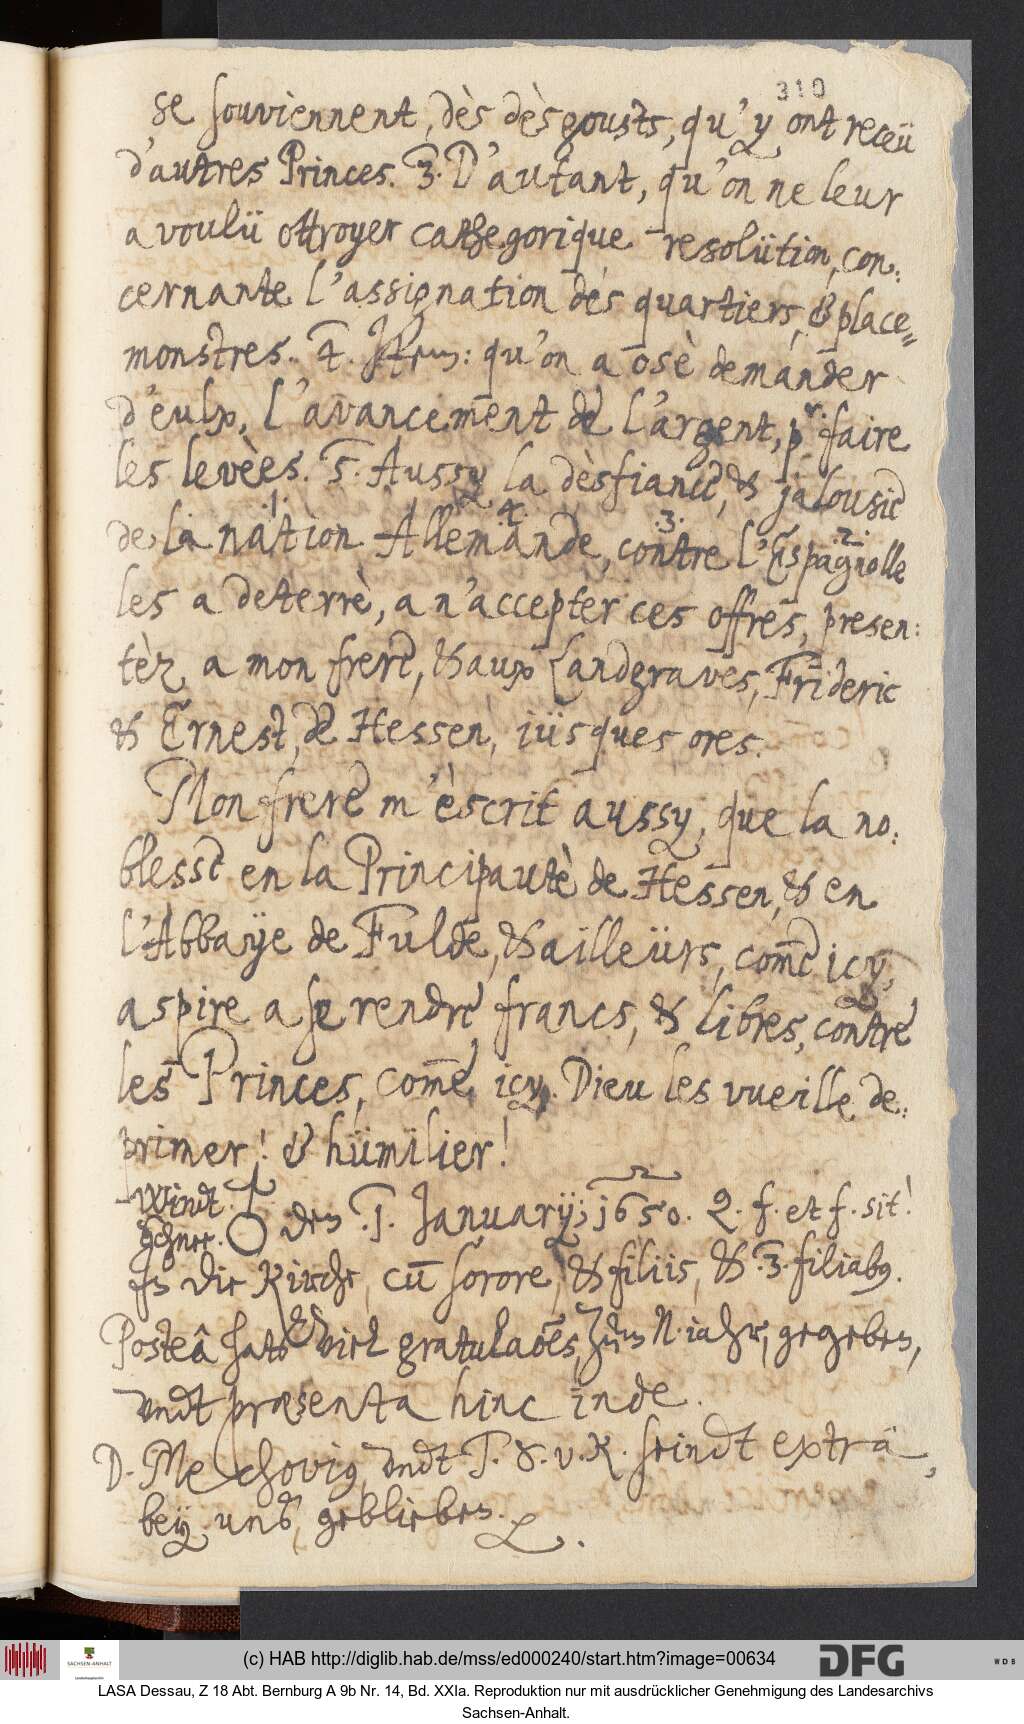 310
se souviennent, dès dèsgousts, qu'y ont receü
d'autres Princes. 3. D'autant, qu'on ne leur
a voulü ottroyer cathegorique resolütion, con:
cernante l'assignation dès quartiers, & place=
monstres. 4. Item: qu'on a osè demander
d'eulx, l'avancement de l'argent, pr. faire
les levèes. 5. Aussy la dèsfiance, & jalousie
.1. .4. .3. .2.
de la nation Allemande, contre l'Espagnolle
les a deterrè, a n'accepter ces offres, presen:
tèz a mon frere, & aux Landgraves, Frideric
& Ernest, de Hessen, iüsques ores.
Mon frere m'èscrit aussy, que la no:
blesse en la Principautè de Hessen, & en
l'Abbaÿe de Fulde, & ailleürs, com̄e icy,
aspire a se rendre francs, & libres, contre
les Princes, com̄e icy. Dieu les vueille de:
primer! & hümilier!
Windt.
Schnee. ☿ den .1. Januarij; 1650. Q. f. et f. sit!
Jn die Kirche, cū sorore, & filiis, & .3. filiabus.
Posteâ hats viel gratulaões, zum N. iahr, gegeben,
vndt præsenta hinc inde.
D. Mechovius vndt T. S. v. K. seindt extrâ,
bey unß, gebliebem.
(c) HAB http://diglib.hab.de/mss/ed000240/start.htm?image=00634
SACHSEN-ANHALT
DFG
W D B
LASA Dessau, Z 18 Abt. Bernburg A 9b Nr. 14, Bd. XXIa. Reproduktion nur mit ausdrücklicher Genehmigung des Landesarchivs
Sachsen-Anhalt.